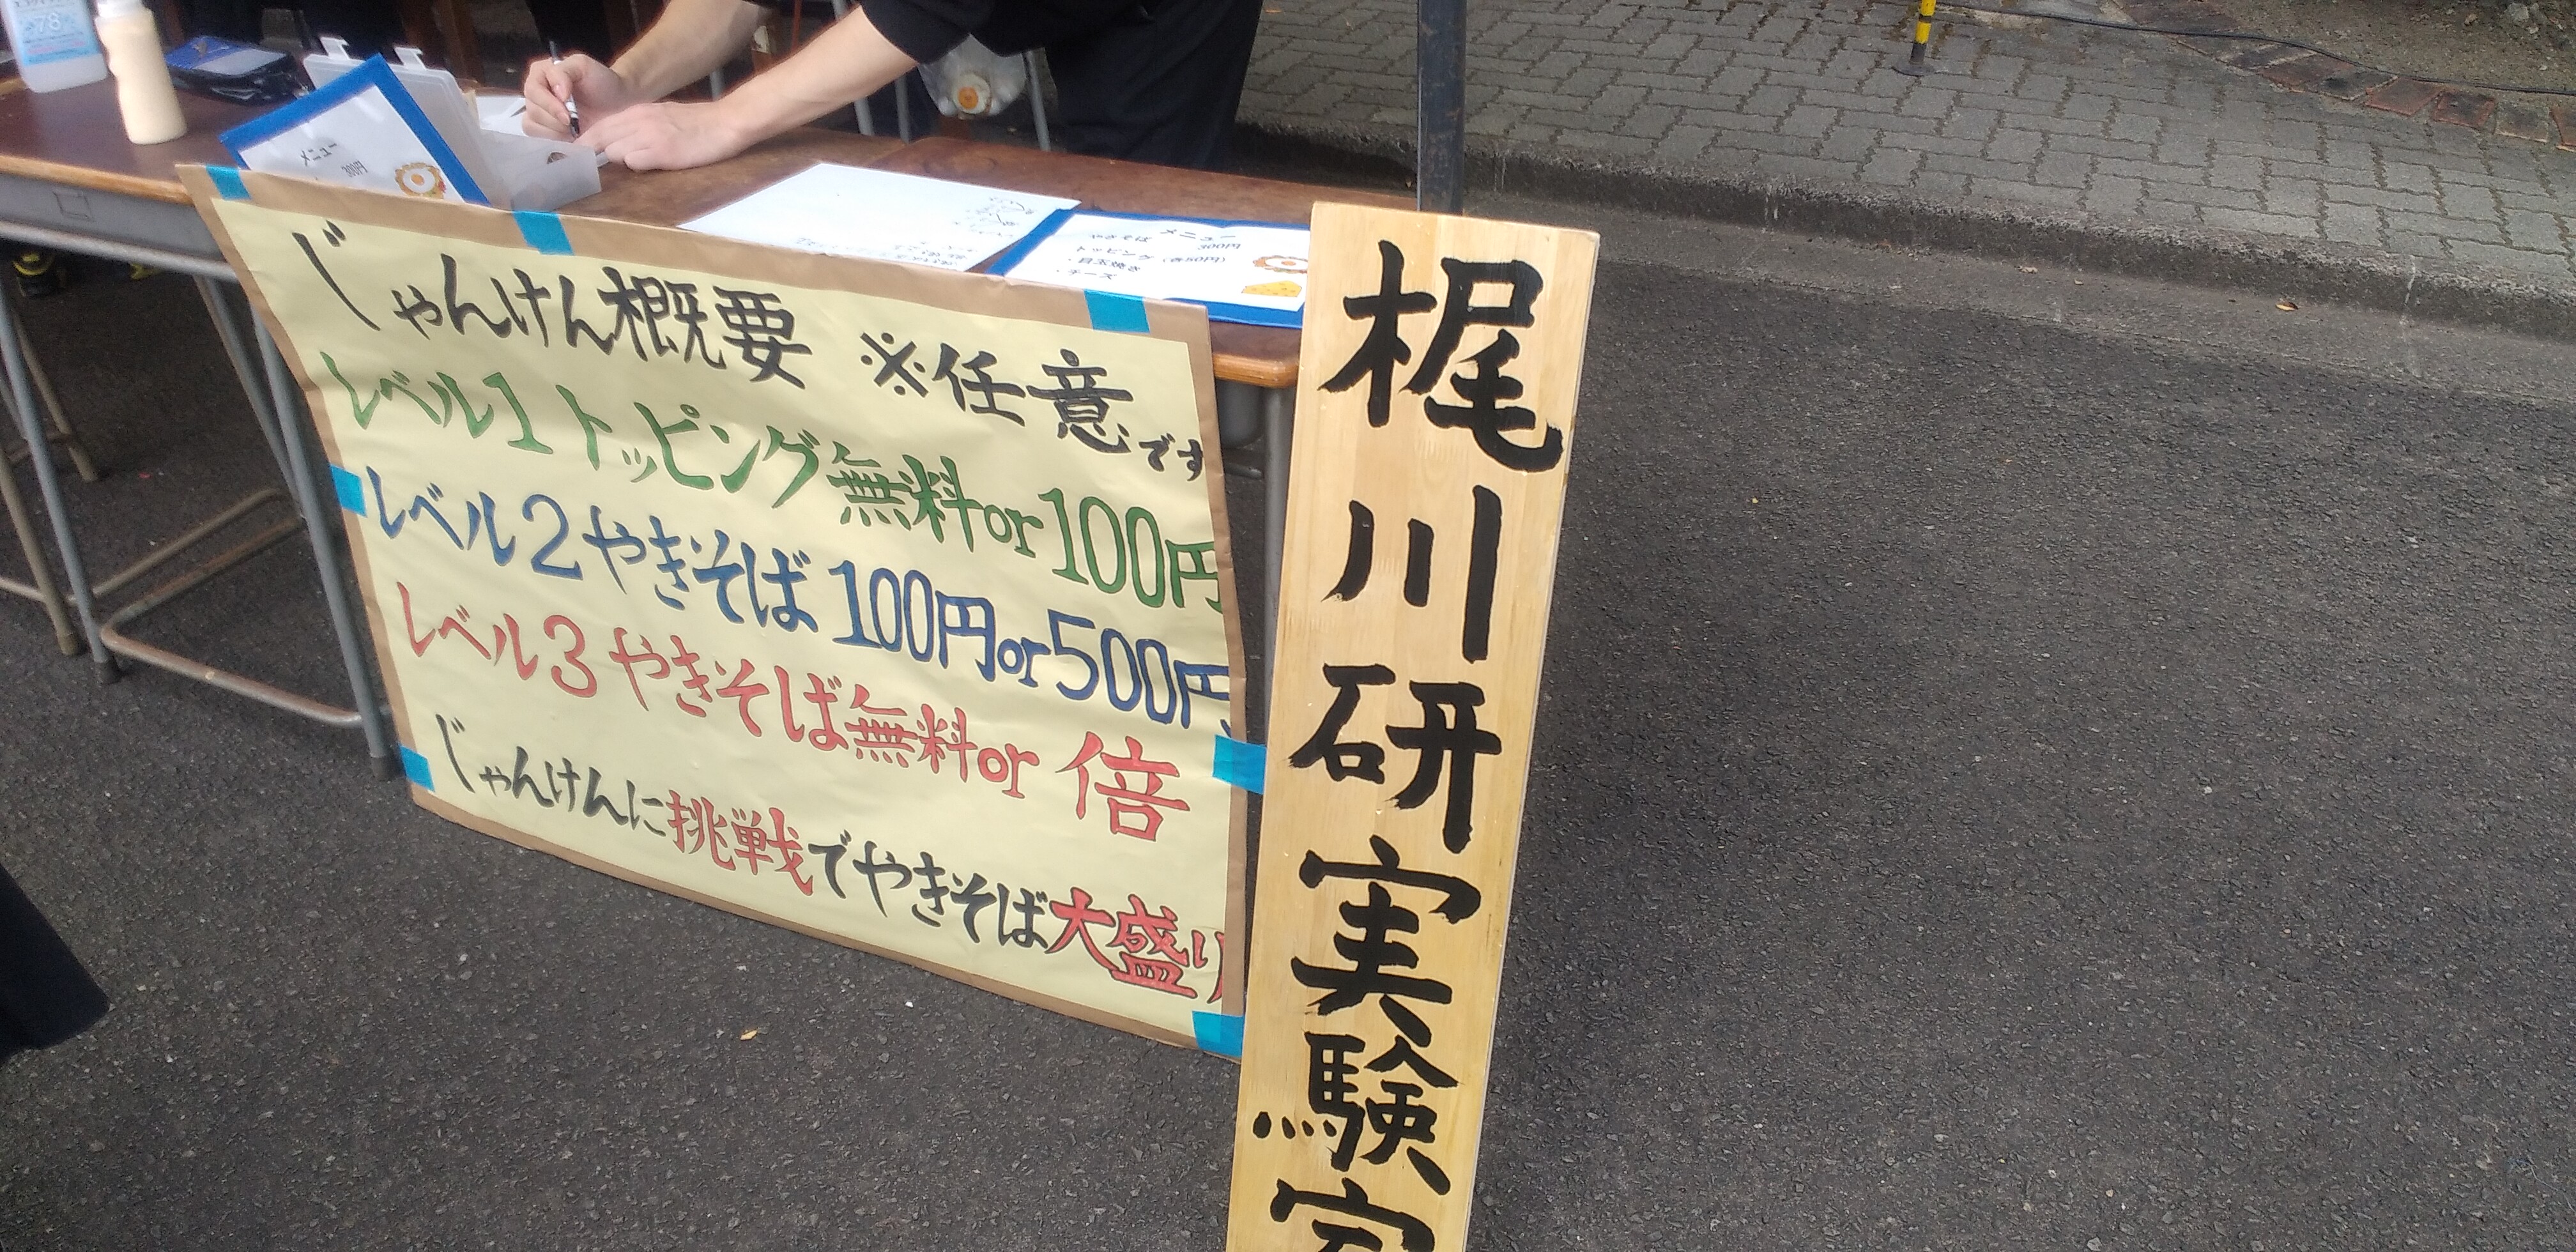 じゃんけん概要 ※任意です
レベル1 トッピング無料or100円
レベル2 やきそば 100円or500円
レベル3 やきそば無料or 倍
じゃんけんに挑戦でやきそば大盛り
梶川研実験室
メニュー
300円
メニュー
やきそば 300円
トッピング (各50円)
・目玉焼き
・チーズ
78